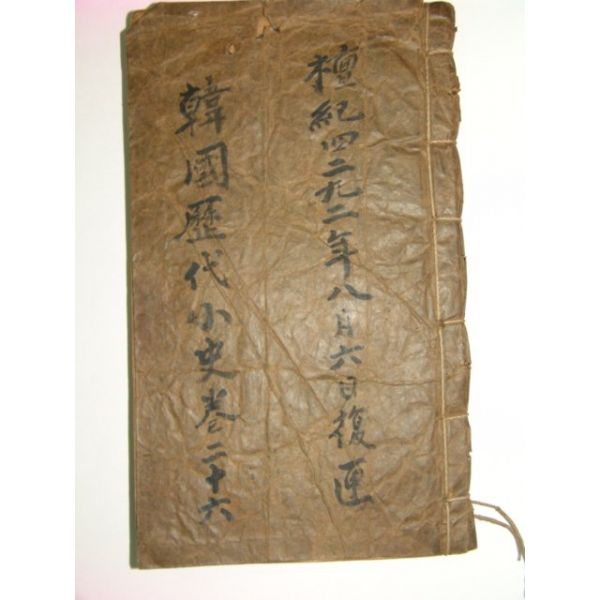 檀紀四二九二年八月六日復匣
韓國歷代小史卷二十六